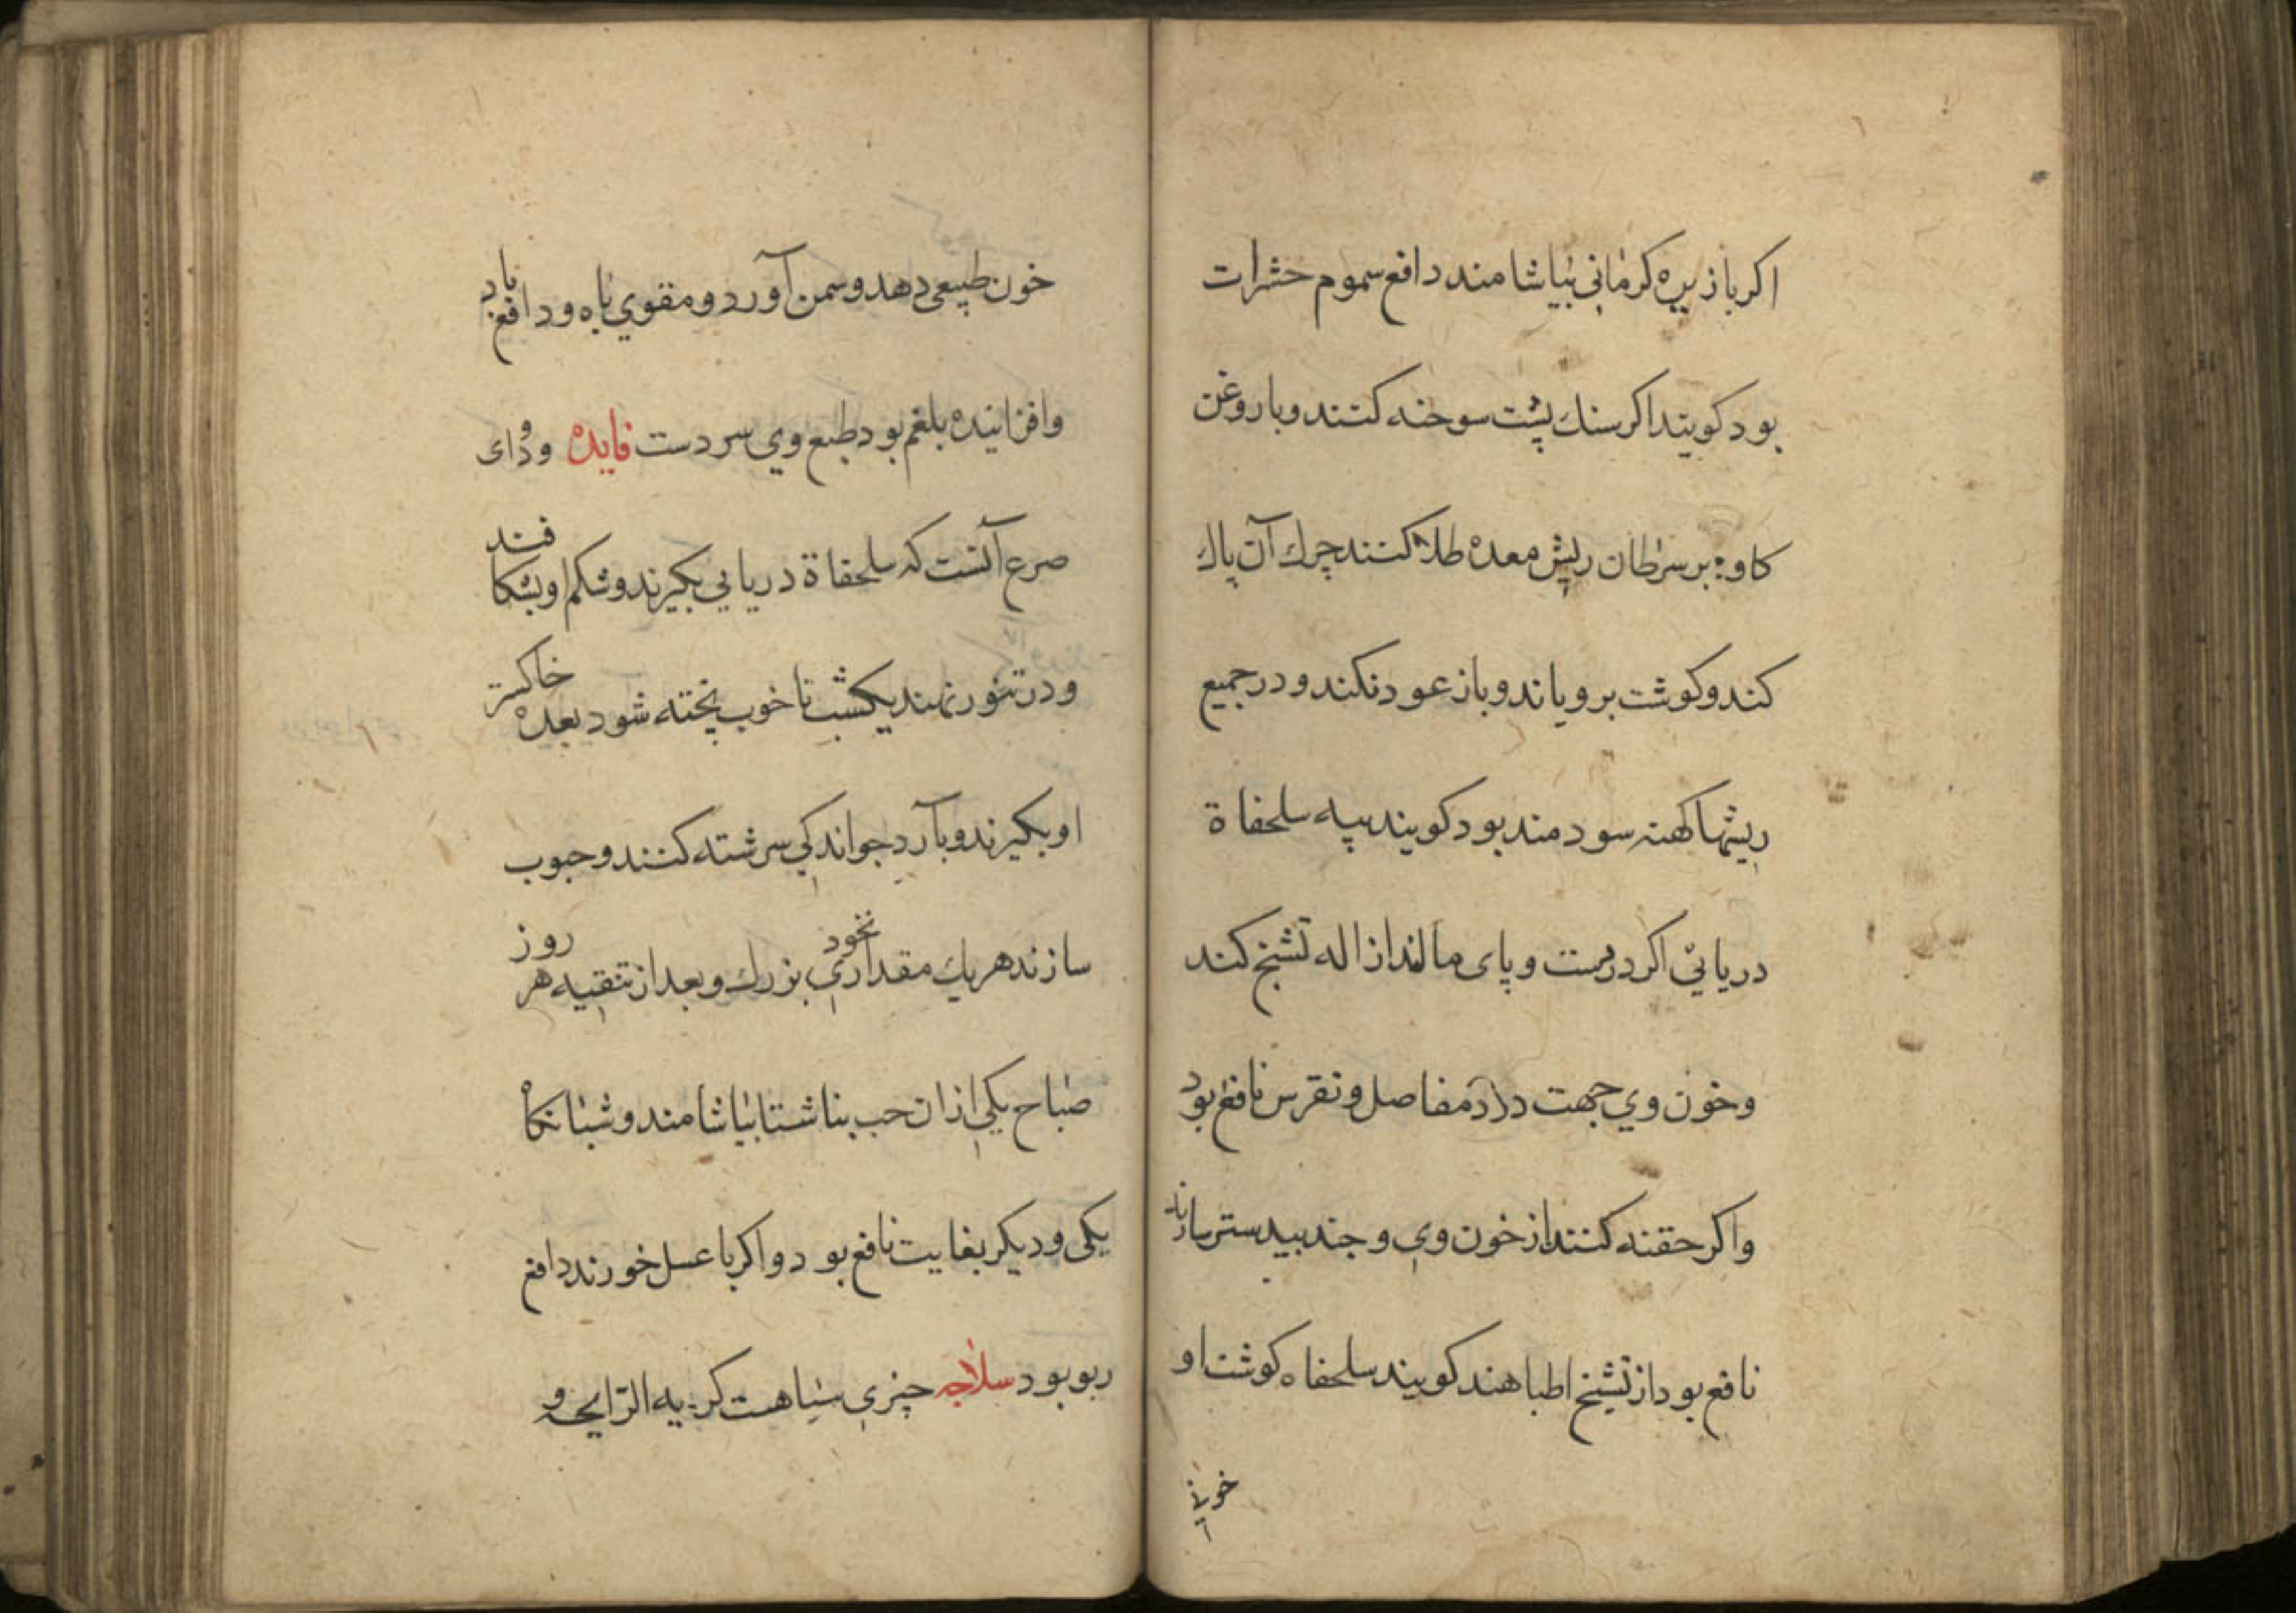 اکر بازیره کرمانی بیاشامند دافع سموم حشرات
بود کویند اکر سنك پشت سوخته کنند و با روغن
کاو بر سرطان ریش معده طلا کنند چرك آن پاك
کند و کوشت برویاند و باز عود نکند و در جمیع
ریشها کهنه سودمند بود کویند پیه سلحفاة
دریائی اکر در دست و پای مالند ازاله تشنج کند
و خون وی جهت درد مفاصل و نقرس نافع بود
و اکر حقنه کنند از خون وی و جند بیدستر سازند
نافع بود از تشنج اطبا هند کویند سلحفاه کوشت او
خون
خون طبیعی دهد و سمن آورد و مقوی باه و دافع باد
و افزاینده بلغم بود طبع وی سردست فایده و دوای
صرع آنست که سلحفاة دریایی بکیرند و شکم او بشکافند
و در تنور نهند یکشب تا خوب پخته شود بعده خاکستر
او بکیرند و با آرد جو اندکی سرشته کنند و حبوب
سازند هریك مقداری نخود بزرك و بعد از تنقیه هر روز
صباح یکی ازان حب بناشتا بیاشامند و شبانکاه
یکی و دیکر بغایت نافع بود و اکر با عسل خورند دافع
ربو بود سلاجه چیزی سیاهست کریه الرایحه و